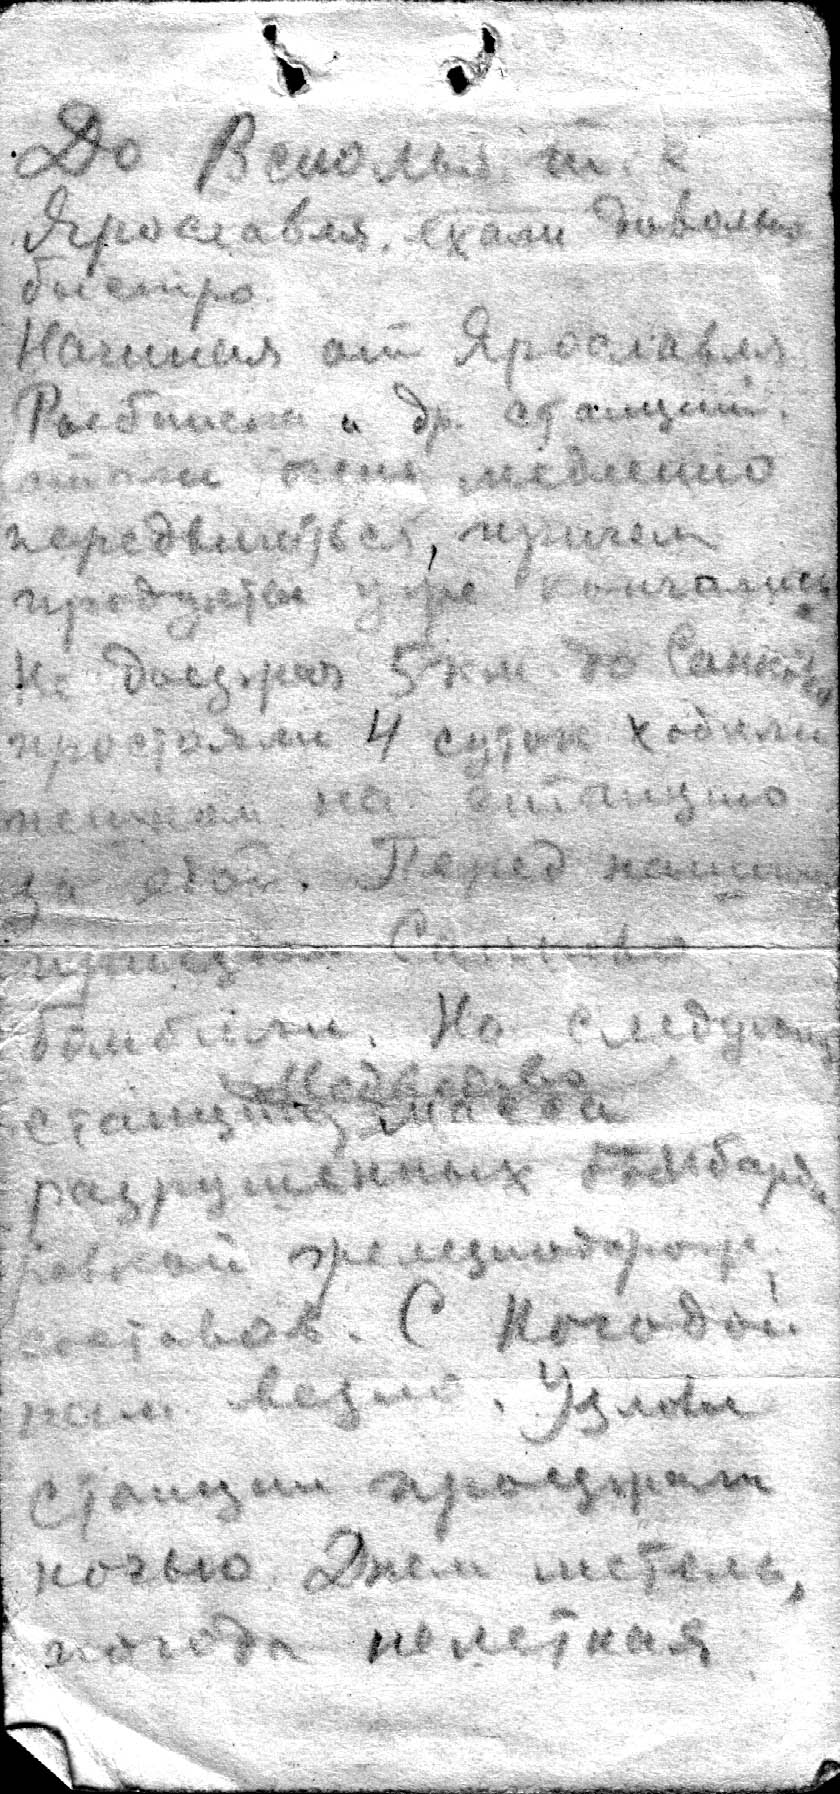 До Всполья т. к
Ярославля, ехали довольно
быстро.
Начиная от Ярославля
Рыбинска и др. станций.
стали очень медленно
передвигаться, причем
продукты уже кончались
Не доезжая 5 км до Санково
простояли 4 суток ходили
пешком на станцию
за едой. Перед нашим
приездом Санково
бомбили. На следующ
станции Масса
Медведево
разрушенных бомбарди
ровкой железнодорож,
составов. С погодой
нам везло. Узловы
станции проезжали
ночью. Днем метель,
погода нелетная